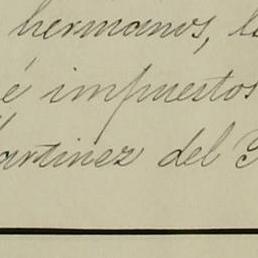 hermanos, l
é impuestos
artinez del